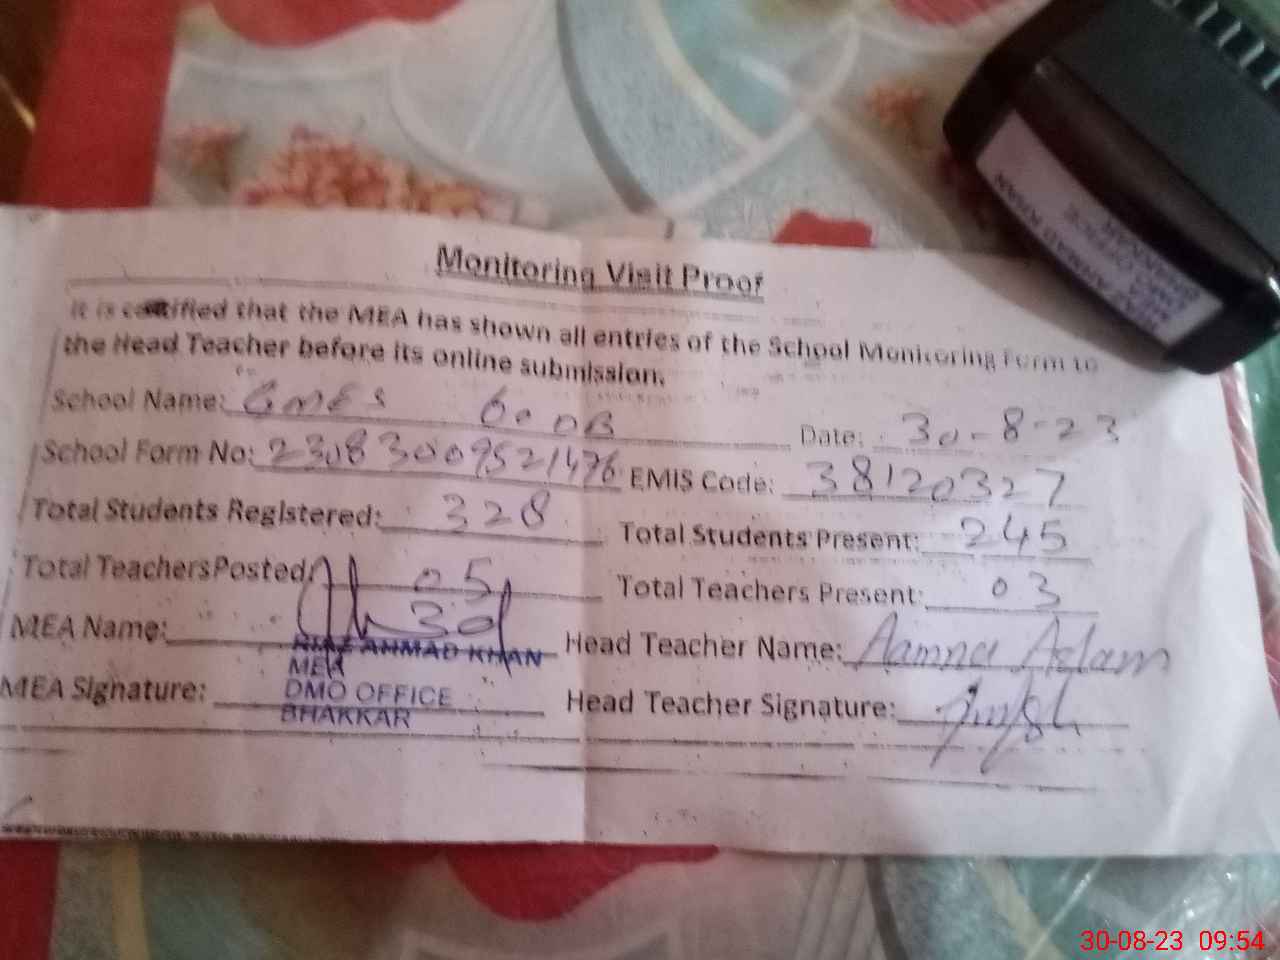 Monitoring Visit Proof
It is certified that the MEA has shown all entries of the School Monitoring Form to
the Head Teacher before its online submission.
School Name: GMES 60 DB Date: 30-8-23
School Form No: 23083009521476 EMIS Code: 38120327
Total Students Registered: 328 Total Students Present: 245
Total Teachers Posted 05 Total Teachers Present: 03
MEA Name: Head Teacher Name: Aamna Aslam
RIAZ AHMAD KHAN
MEA
MEA Signature: Head Teacher Signature:
DMO OFFICE
BHAKKAR
30-08-23 09:54